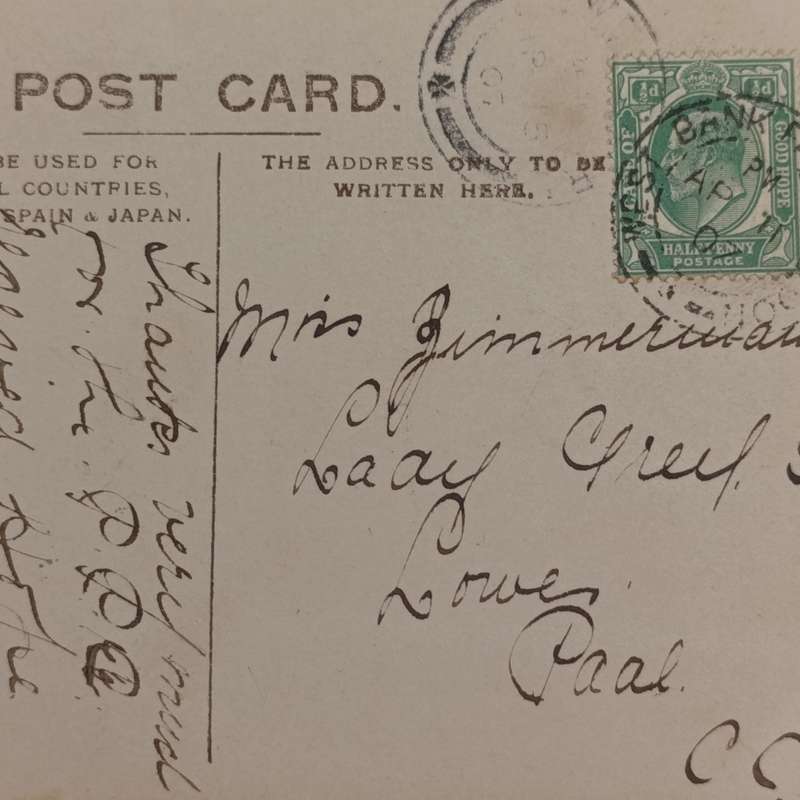 POST CARD.
BE USED FOR
L COUNTRIES,
SPAIN & JAPAN.
THE ADDRESS ONLY TO BE
WRITTEN HERE.
½d ½d
OF GOOD HOPE
HALF PENNY
POSTAGE
BANK
PM
AP 11
Miss Zimmerman
Lady Grey
Lower
Paal.
C
Thanks very much
for the P.P.C